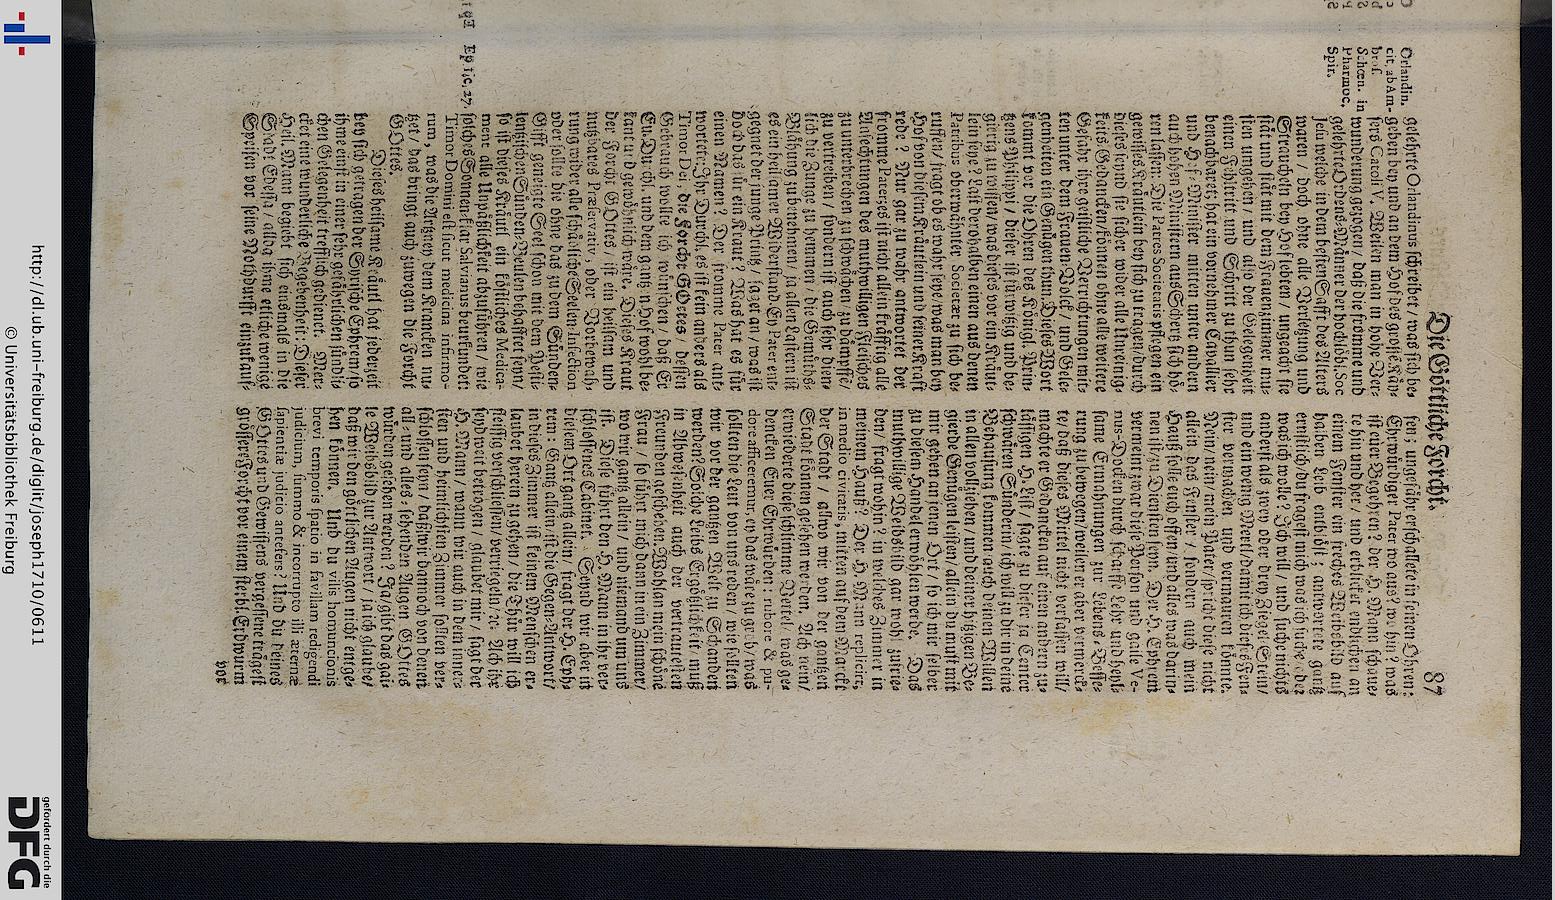 Die Göttliche Forcht. 87
Orlandin.
cit. ab Am-
bros.
Schœn. in
Pharmoc,
Spir.
gelehrte Orlandinus schreibet / was sich be-
geben bey und an dem Hof des groß Käy-
sers Caroli V. Weilen man in hohe Ver-
wunderung gezogen / daß die fromme und
gelehrte Ordens-Männer der hochlöbl. Soc
Jesu welche in dem besten Safft des Alters
waren / doch ohne alle Verletzung und
Strauchen bey Hof lebten / ungeacht sie
stät und stät mit dem Frauenzimmer mu-
sten umgehen / und also der Gelegenheit
einen Fehltritt und Schritt zuthun sehr
benachbaret; hat ein vornehmer Cavallier
und Hof-Minister mitten unter andern
auch hohen Ministern auß Schertz sich hö-
ren lassen: Die Patres Societatis pflegen ein
gewisses Kräutlein bey sich zu tragen / durch
dieses seynd sie sicher wider alle Unreinig-
keits Gedancken / können ohne alle weitere
Gefahr ihre geistliche Verrichtungen mit-
ten unter dem Frauen-Volck / und Gele-
genheiten ein Genügen thun. Dieses Wort
kommt vor die Ohren des Königl. Prin-
tzens Philippi / dieser ist fürwitzig und be-
gierig zu wissen / was dieses vor ein Kräut-
lein seye? Last derohalben einen aus denen
Patribus oberwöhnter Societæt zu sich be-
ruffen / fragt ob es wahr seye / was man bey
Hof von diesem Kräutlein und seiner Krafft
rede? Nur gar zu wahr antwortet der
fromme Pater; es ist nicht allein kräfftig alle
Anfechtungen des muthwilligen Fleisches
zu unterbrechen / zu schwächen / zu dämpffē /
zu vertreiben / sondern ist auch sehr dien-
lich die Zung zu hemmen / die Gemüths-
Blähung zu benehmen / ja allen Lastern ist
es ein heilsamer Widerstand. Ey Pater ent-
gegnet der junge Printz / saget an / was ist
doch das für ein Kraut? Was hat es für
einen Namen? Der fromme Pater ant-
wortete: Ihr Durchl. es ist kein anders als
Timor Dei, die Forcht GOttes / dessen
Gebrauch ich wolte wünschen / daß Er
Eu. Durchl. und dem gantzen Hof wohl be-
kant und gewöhnlich wäre. Dieses Kraut
der Forcht GOttes / ist ein heilsam und
nutzbares Præservativ, oder Vorbewah-
rung wider alle schädliche Seelen-Infection
oder solte die ohne das zu dem Sünden-
Gifft geneigte Seel schon mit dem Pesti-
lentzischen Sünden-Beulen behafftet seyn /
so ist dieses Kräutl ein köstliches Medica-
ment alle Unpäßlichkeit abzuführen / wie
solches Sonnen-klar Salvianus beurkundet:
Timor Domini est sicut medicina infirmo-
rum, was die Artzney dem Krancken nu-
tzet / das bringt auch zuwegen die Forcht
GOttes.
Ep. sic. 27.
Dieses heilsame Kräutl hat jederzeit
bey sich getragen der Syrische Ephrem / so
ihme einst in einer sehr gefährlichen sündli-
chen Gelegenheit trefflich gedienet. Mer-
cket eine wunderliche Begebenheit: Dieser
Heil. Mann begiebt sich einsmals in die
Stadt Edessa / allda ihme etliche wenige
Speisen vor seine Nothdurfft einzukauf-
fen; ungefähr erschallete in seinen Ohren:
Ehrwürdiger Pater, wo aus? wo hin? was
ist euer Begehren? der H. Mann schaue-
te hin und her / und erblicket endlichen an
einem Fenster ein freches Weibsbild auf
halben Leib entblöst; antwortete gantz
ernstlich / du fragest mich was ich suche oder
was ich wolle? Ich will / und suche nichts
anderst als zwey oder drey Ziegel-Stein /
und ein wenig Mertl / damit ich dieses Fen-
ster vermachen und vermauren könne.
Nein / nein / mein Pater / spricht diese nicht
allein das Fenster / sondern auch mein
Hauß solle euch offen / und alles was darin-
nen ist / zu Diensten seyn. Der H. Ephrem
vermeint zwar diese Person / und gaile Ve-
nus-Docken durch scharffe Lehr und heyl-
same Ermahnungen zur Lebens-Besse-
rung zu bewegen / weilen er aber vermerck-
te / daß dieses Mittel nicht verfassen will /
machte er Gedancken auf einen andern zu-
lässigen H. List / sagte zu dieser ja Center
schwären Sünderin / ich will zu dir in deine
Behausung kommen / auch deinen Willen
in allen vollziehen / und deiner hitzigen Be-
gierde Genügen leisten / allein du must mit
mir gehen an jenen Ort / so ich mir selber
zu diesem Handel erwöhlen werde. Das
muthwillige Weibsbild gar wohl zufrie-
den / fragt wohin? in welches Zimmer in
meinem Hauß? Der H. Mann repliciert,
in medio civitatis, mitten auf dem Marckt
der Stadt / allwo wir von der gantzen
Stadt können gesehen werden. Ach nein /
erwiederte diese schlimme Vettel, was ge-
dencken Euer Ehrwürden: rubore & pu-
dore afficeremur, ey das wäre zu grob / was
solten die Leut von uns reden / wie solten
wir vor der gantzen Welt zu Schanden
werden? Solche Leibs Ergötzlichkeit muß
in Abwesenheit auch der vertrautesten
Freunden geschehen. Wohlan mein schöne
Frau / so führet mich dann in ein Zimmer /
wo wir gantz allein / und niemand um uns
ist. Diese führet den H. Mann in ihr ver-
schlossenes Cabinet. Seynd wir aber in
diesem Ort gantz allein / fragt der H. Eph-
rem: Gantz allein / ist die Gegen-Antwort /
in dieses Zimmer ist keinem Menschen er-
laubet herein zu gehen / die Thür will ich
fleissig verschliessen / verriegeln / rc. Ach ihr
seyd weit betrogen / glaubet mir / sagt der
H. Mann / wann wir auch in dem inner-
sten und heimlichsten Zimmer solten ver-
schlossen seyn / daß wir dannoch von denen
all- und alles-sehenden Augen GOttes
würden gesehen werden? Ja / gibt das gai-
le Weibsbild zur Antwort / ja ich glaube /
daß wir den göttlichen Augen nicht entge-
hen können. Und du vilis homuncionis
brevi temporis spatio in favillam redigendi
judicium, summo & incorrupto illi æternæ
sapientiæ judicio antefers? Und du deines
GOttes und Gewissens vergessene trägest
grössere Forcht vor einem sterbl. Erdwurm
vor
http://dl.ub.uni-freiburg.de/diglit/joseph1710/0611
© Universitätsbibliothek Freiburg
gefördert durch die
DFG